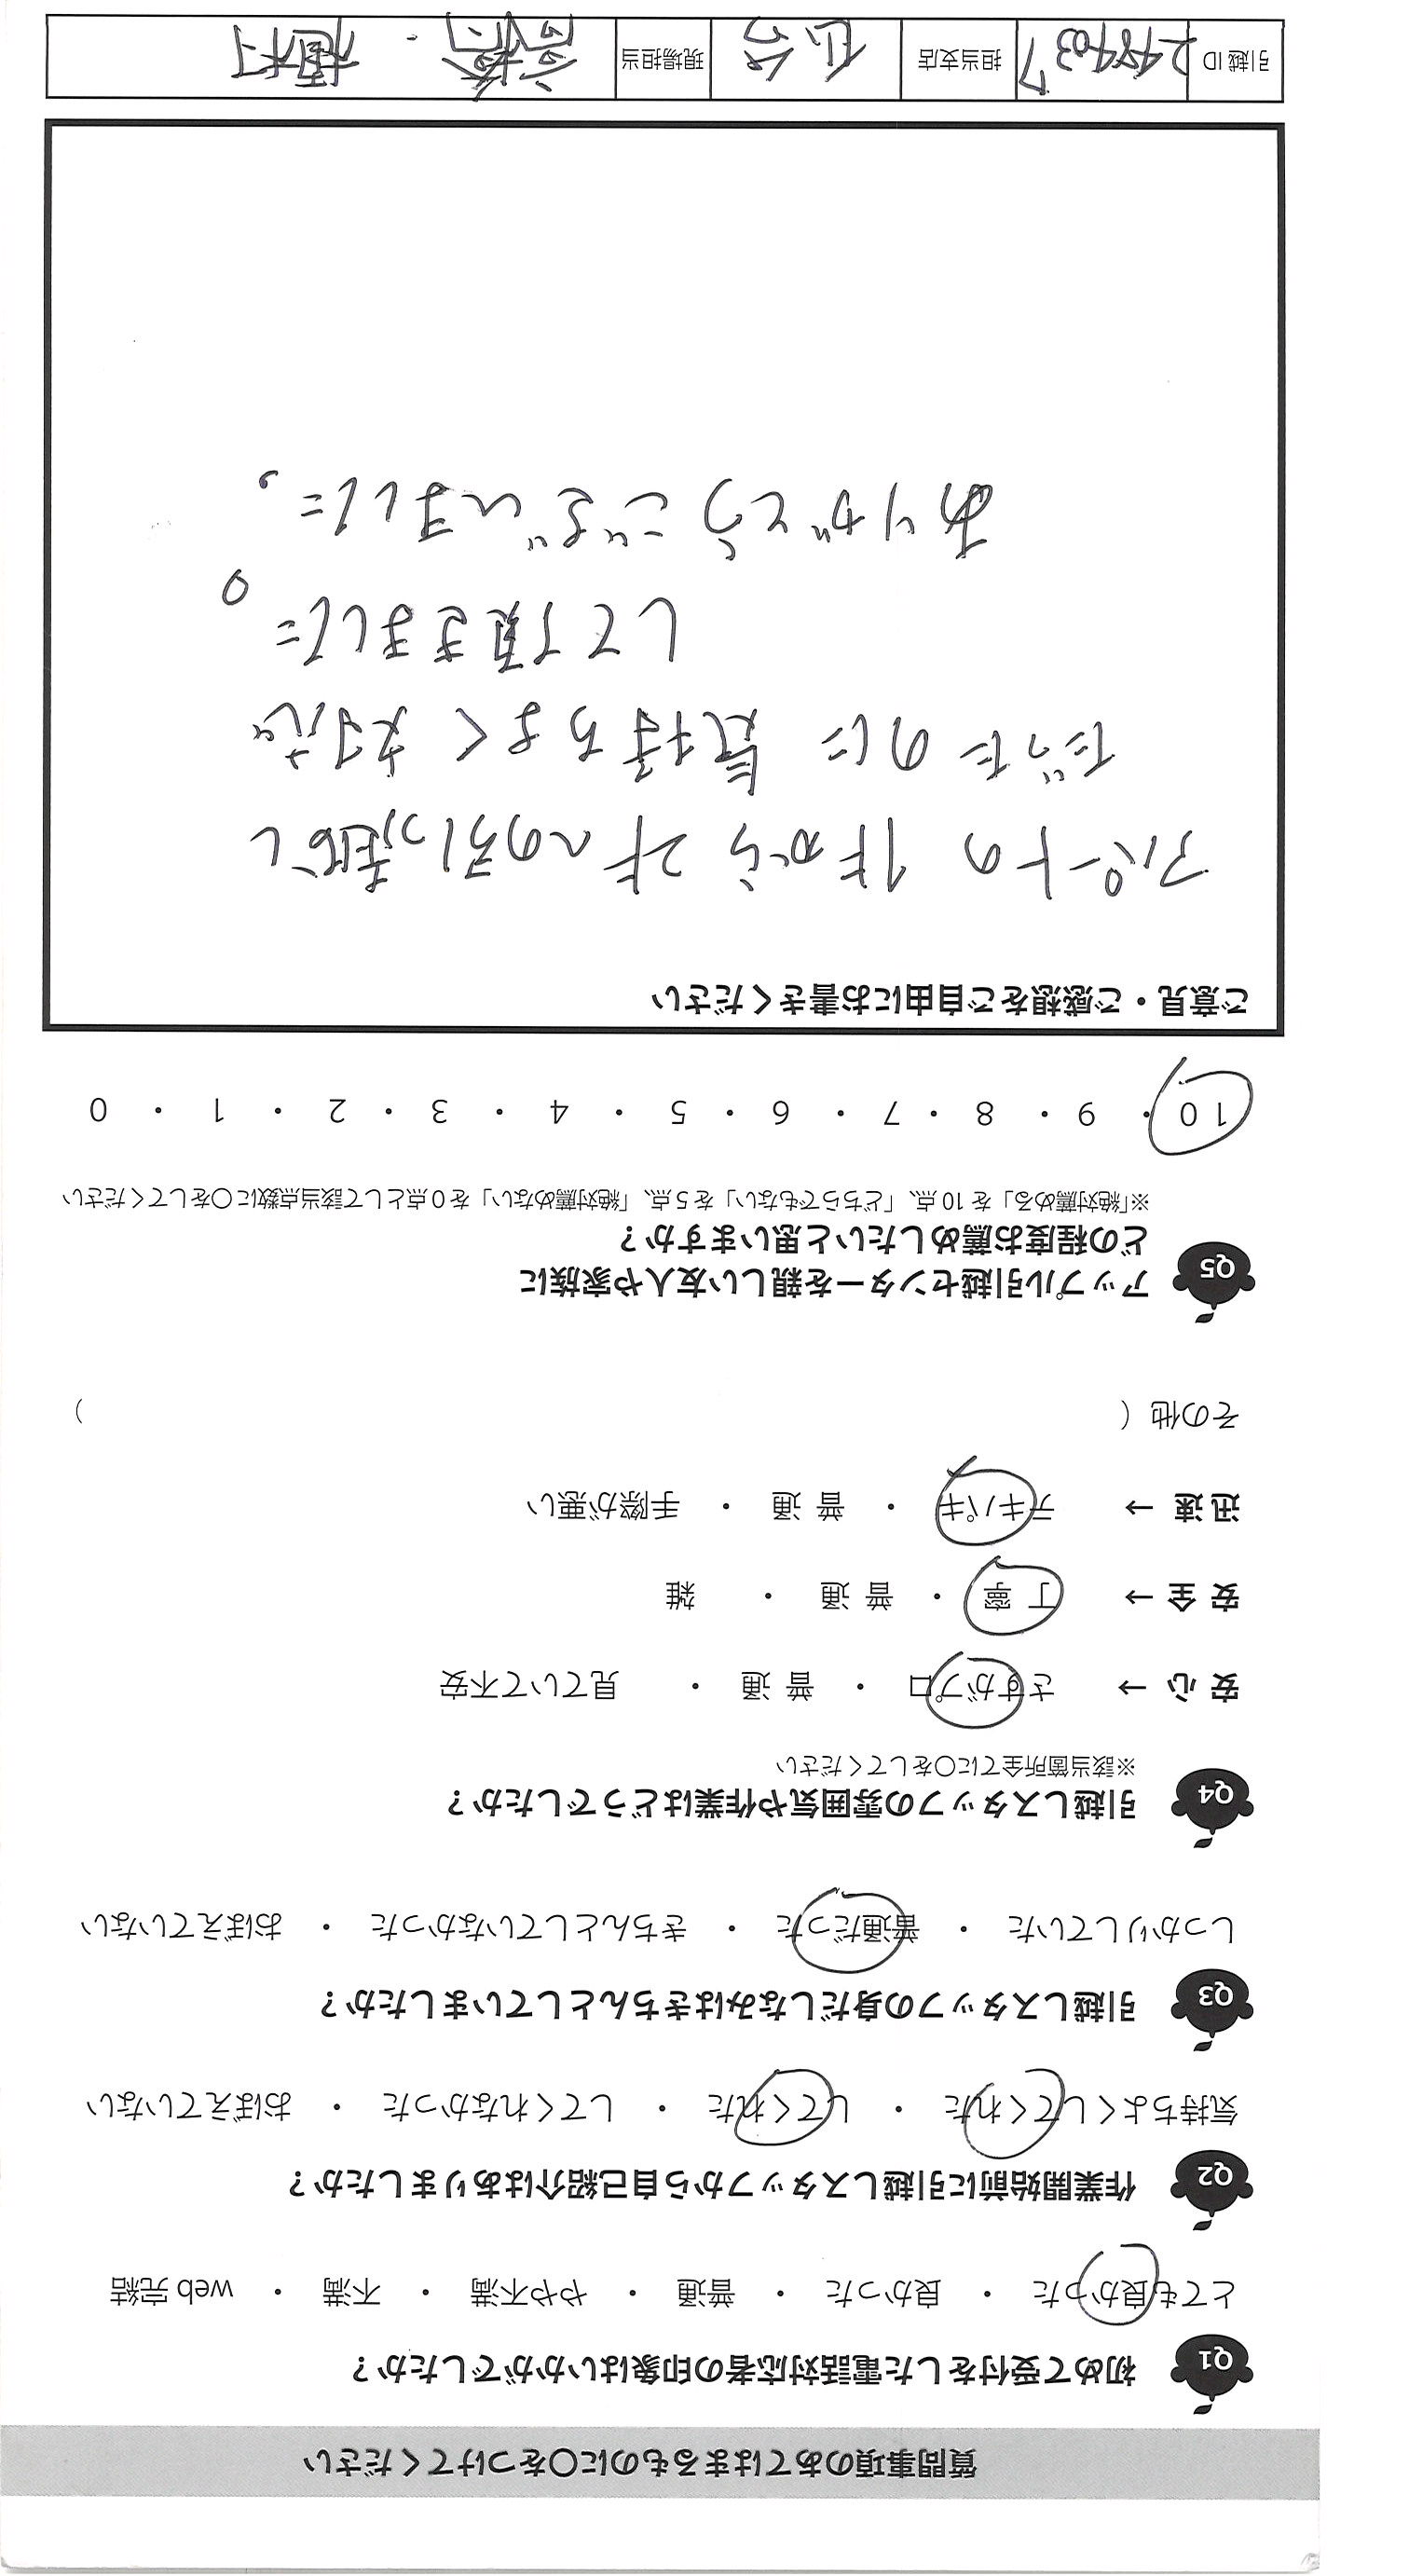 質問事項のあてはまるものに○をつけてください
Q1 初めて受付をした電話対応者の印象はいかがでしたか?
とても良かった ・ 良かった ・ 普通 ・ やや不満 ・ 不満 ・ web 完結
Q2 作業開始前に引越しスタッフから自己紹介はありましたか?
気持ちよくしてくれた ・ してくれた ・ してくれなかった ・ おぼえていない
Q3 引越しスタッフの身だしなみはきちんとしていましたか?
しっかりしていた ・ 普通だった ・ きちんとしていなかった ・ おぼえていない
Q4 引越しスタッフの雰囲気や作業はどうでしたか?
※該当箇所全てに○をしてください
安 心 → さすがプロ ・ 普 通 ・ 見ていて不安
安 全 → 丁 寧 ・ 普 通 ・ 雑
迅 速 → テキパキ ・ 普 通 ・ 手際が悪い
その他 ( )
Q5 アップル引越センターを親しい友人や家族に
どの程度お薦めしたいと思いますか?
※「絶対薦める」を 10 点、「どちらでもない」を 5 点、「絶対薦めない」を 0 点として該当点数に○をしてください
10 ・ 9 ・ 8 ・ 7 ・ 6 ・ 5 ・ 4 ・ 3 ・ 2 ・ 1 ・ 0
ご意見・ご感想をご自由にお書きください
アパートの 1Fから 2Fへの引っ越し
だったのに 気持ちよく 対応
して頂きました。
ありがとうございました。
引越 ID 2484037 担当支店 仙台 現場担当 高橋 ・ 植村